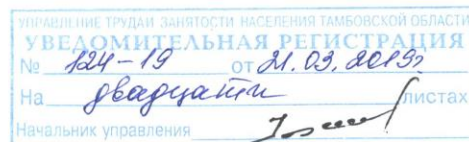 УПРАВЛЕНИЕ ТРУДА И ЗАНЯТОСТИ НАСЕЛЕНИЯ ТАМБОВСКОЙ ОБЛАСТИ
УВЕДОМИТЕЛЬНАЯ РЕГИСТРАЦИЯ
№ 124-19 от 21.03.2019г
На двадцати листах
Начальник управления